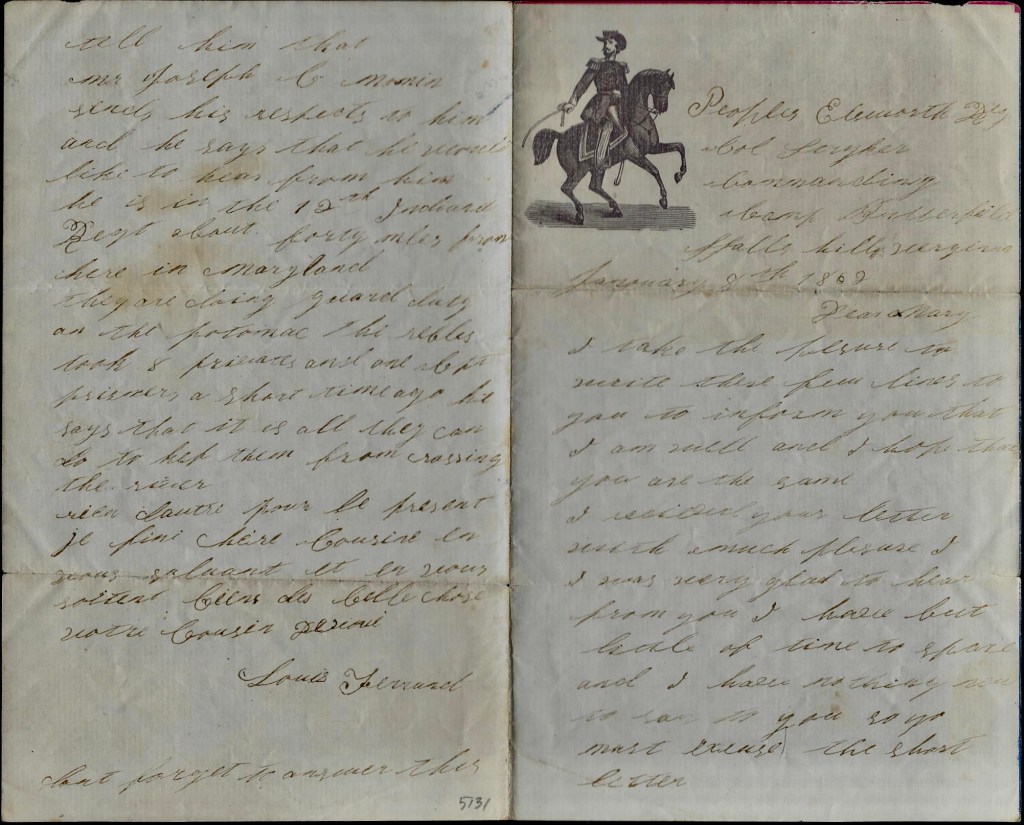 Peoples Elsworth Reg
Col Stryker
Commanding
Camp Butterfield
ffalls hill vergina
January 8th 1862
Dear Mary
I take the plesure to
write these few lines to
you to inform you that
I am well and I hope that
you are the same
I recieved your letter
with much plesure I
I was very glad to hear
from you I have but
little of time to spare
and I have nothing new
to say to you so yo
must excuse the short
letter
tell him that
mr Joseph C
sends his respects to him
and he says that he would
like to hear from him
he is in the 12th Indiana
Regt about forty miles from
here in Maryland
they are doing guard duty
on the potomac the rebles
took 8 privates and one Cpt
prisoners a short time ago he
says that it is all they can
do to kep them from crossing
the river
rien dautre pour le present
je fini chère Cousine en
vous saluant et en vous
Biens des belle chose
votre Cousin
Louis Ferrand
dont forget to answer this
5131